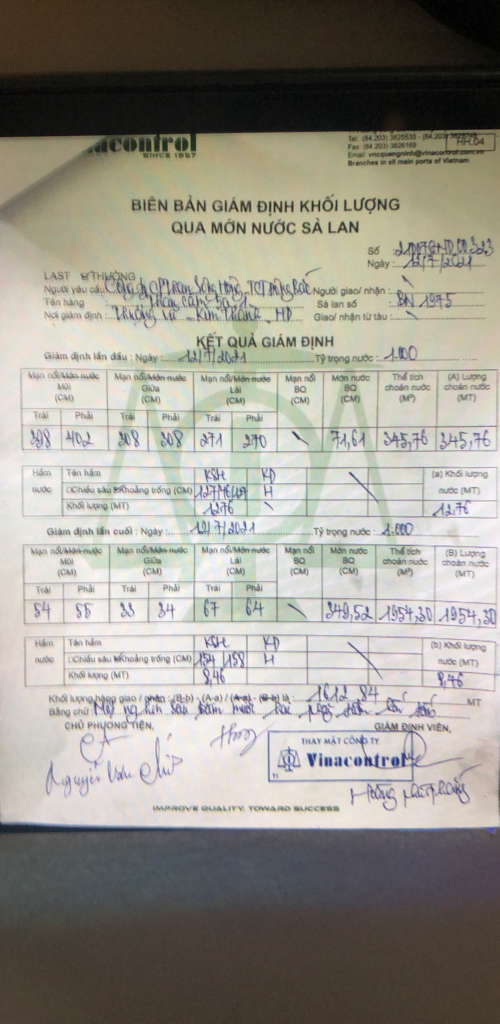 acontrol
SINCE 1957
Tel: (84.203) 3825535 - (84.203)
Fax: (84.203) 3826169
Email: vncquangninh@vinacontrol.com.vn
Branches in all main ports of Vietnam
HH.04
BIÊN BẢN GIÁM ĐỊNH KHỐI LƯỢNG
QUA MỚN NƯỚC SÀ LAN
Số :
Ngày : 12/7/2021
LAST THƯỜNG
Người yêu cầu Người giao/ nhận :
Tên hàng : Than cám 5a.1 Sà lan số : BN 1975
Nơi giám định : Thượng Vũ - Kim Thành - HD Giao/ nhận từ tàu :
KẾT QUẢ GIÁM ĐỊNH
Giám định lần đầu : Ngày : 12/7/2021 Tỷ trọng nước : 1.000
Mạn nổi/Mớn nước Mũi (CM) Mạn nổi/Mớn nước Giữa (CM) Mạn nổi/Mớn nước Lái (CM) Mạn nổi BQ (CM) Mớn nước BQ (CM) Thể tích choán nước (M³) (A) Lượng choán nước (MT)
Trái Phải Trái Phải Trái Phải
398 402 308 308 271 270 71,61 345,76 345,76
Hầm nước Tên hầm KSH KĐ (a) Khối lượng nước (MT)
Chiều sâu Khoảng trống (CM) H
Khối lượng (MT) 12.76 12.76
Giám định lần cuối : Ngày : 12/7/2021 Tỷ trọng nước : 1.000
Mạn nổi/Mớn nước Mũi (CM) Mạn nổi/Mớn nước Giữa (CM) Mạn nổi/Mớn nước Lái (CM) Mạn nổi BQ (CM) Mớn nước BQ (CM) Thể tích choán nước (M³) (B) Lượng choán nước (MT)
Trái Phải Trái Phải Trái Phải
54 55 33 34 67 64 349,52 1954,30 1954,30
Hầm nước Tên hầm KSH KĐ (b) Khối lượng nước (MT)
Chiều sâu Khoảng trống (CM) 154 158 H
Khối lượng (MT) 8,46 8,46
Khối lượng hàng giao / nhận : (B-b) - (A-a) / (A-a) - (B-b) là : 1612,84 MT
Bằng chữ: Một nghìn sáu trăm mười hai
CHỦ PHƯƠNG TIỆN, GIÁM ĐỊNH VIÊN,
THAY MẶT CÔNG TY
Vinacontrol
Nguyễn Văn
IMPROVE QUALITY, TOWARD SUCCESS